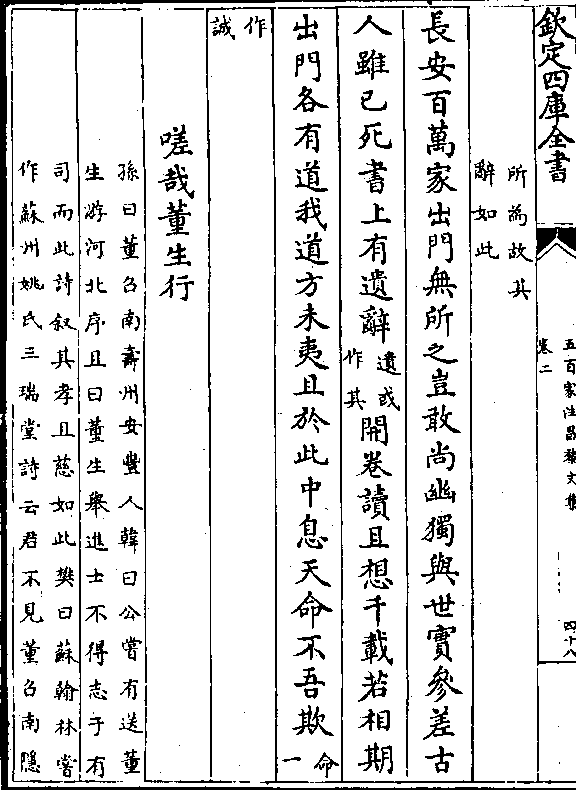 欽定四庫全書
五百家注昌黎文集
卷二
四十八
所為故其
辭如此
長安百萬家出門無所之豈敢尚幽獨與世實參差古
人雖已死書上有遺辭遺或作其開卷讀且想千載若相期
出門各有道我道方未夷且於此中息天命不吾欺命一
作誠
嗟哉董生行
孫曰董召南壽州安豐人韓曰公嘗有送董
生游河北序且曰董生舉進士不得志于有
司而此詩叙其孝且慈如此樊曰蘇翰林嘗
作蘇州姚氏三瑞堂詩云君不見董召南隱